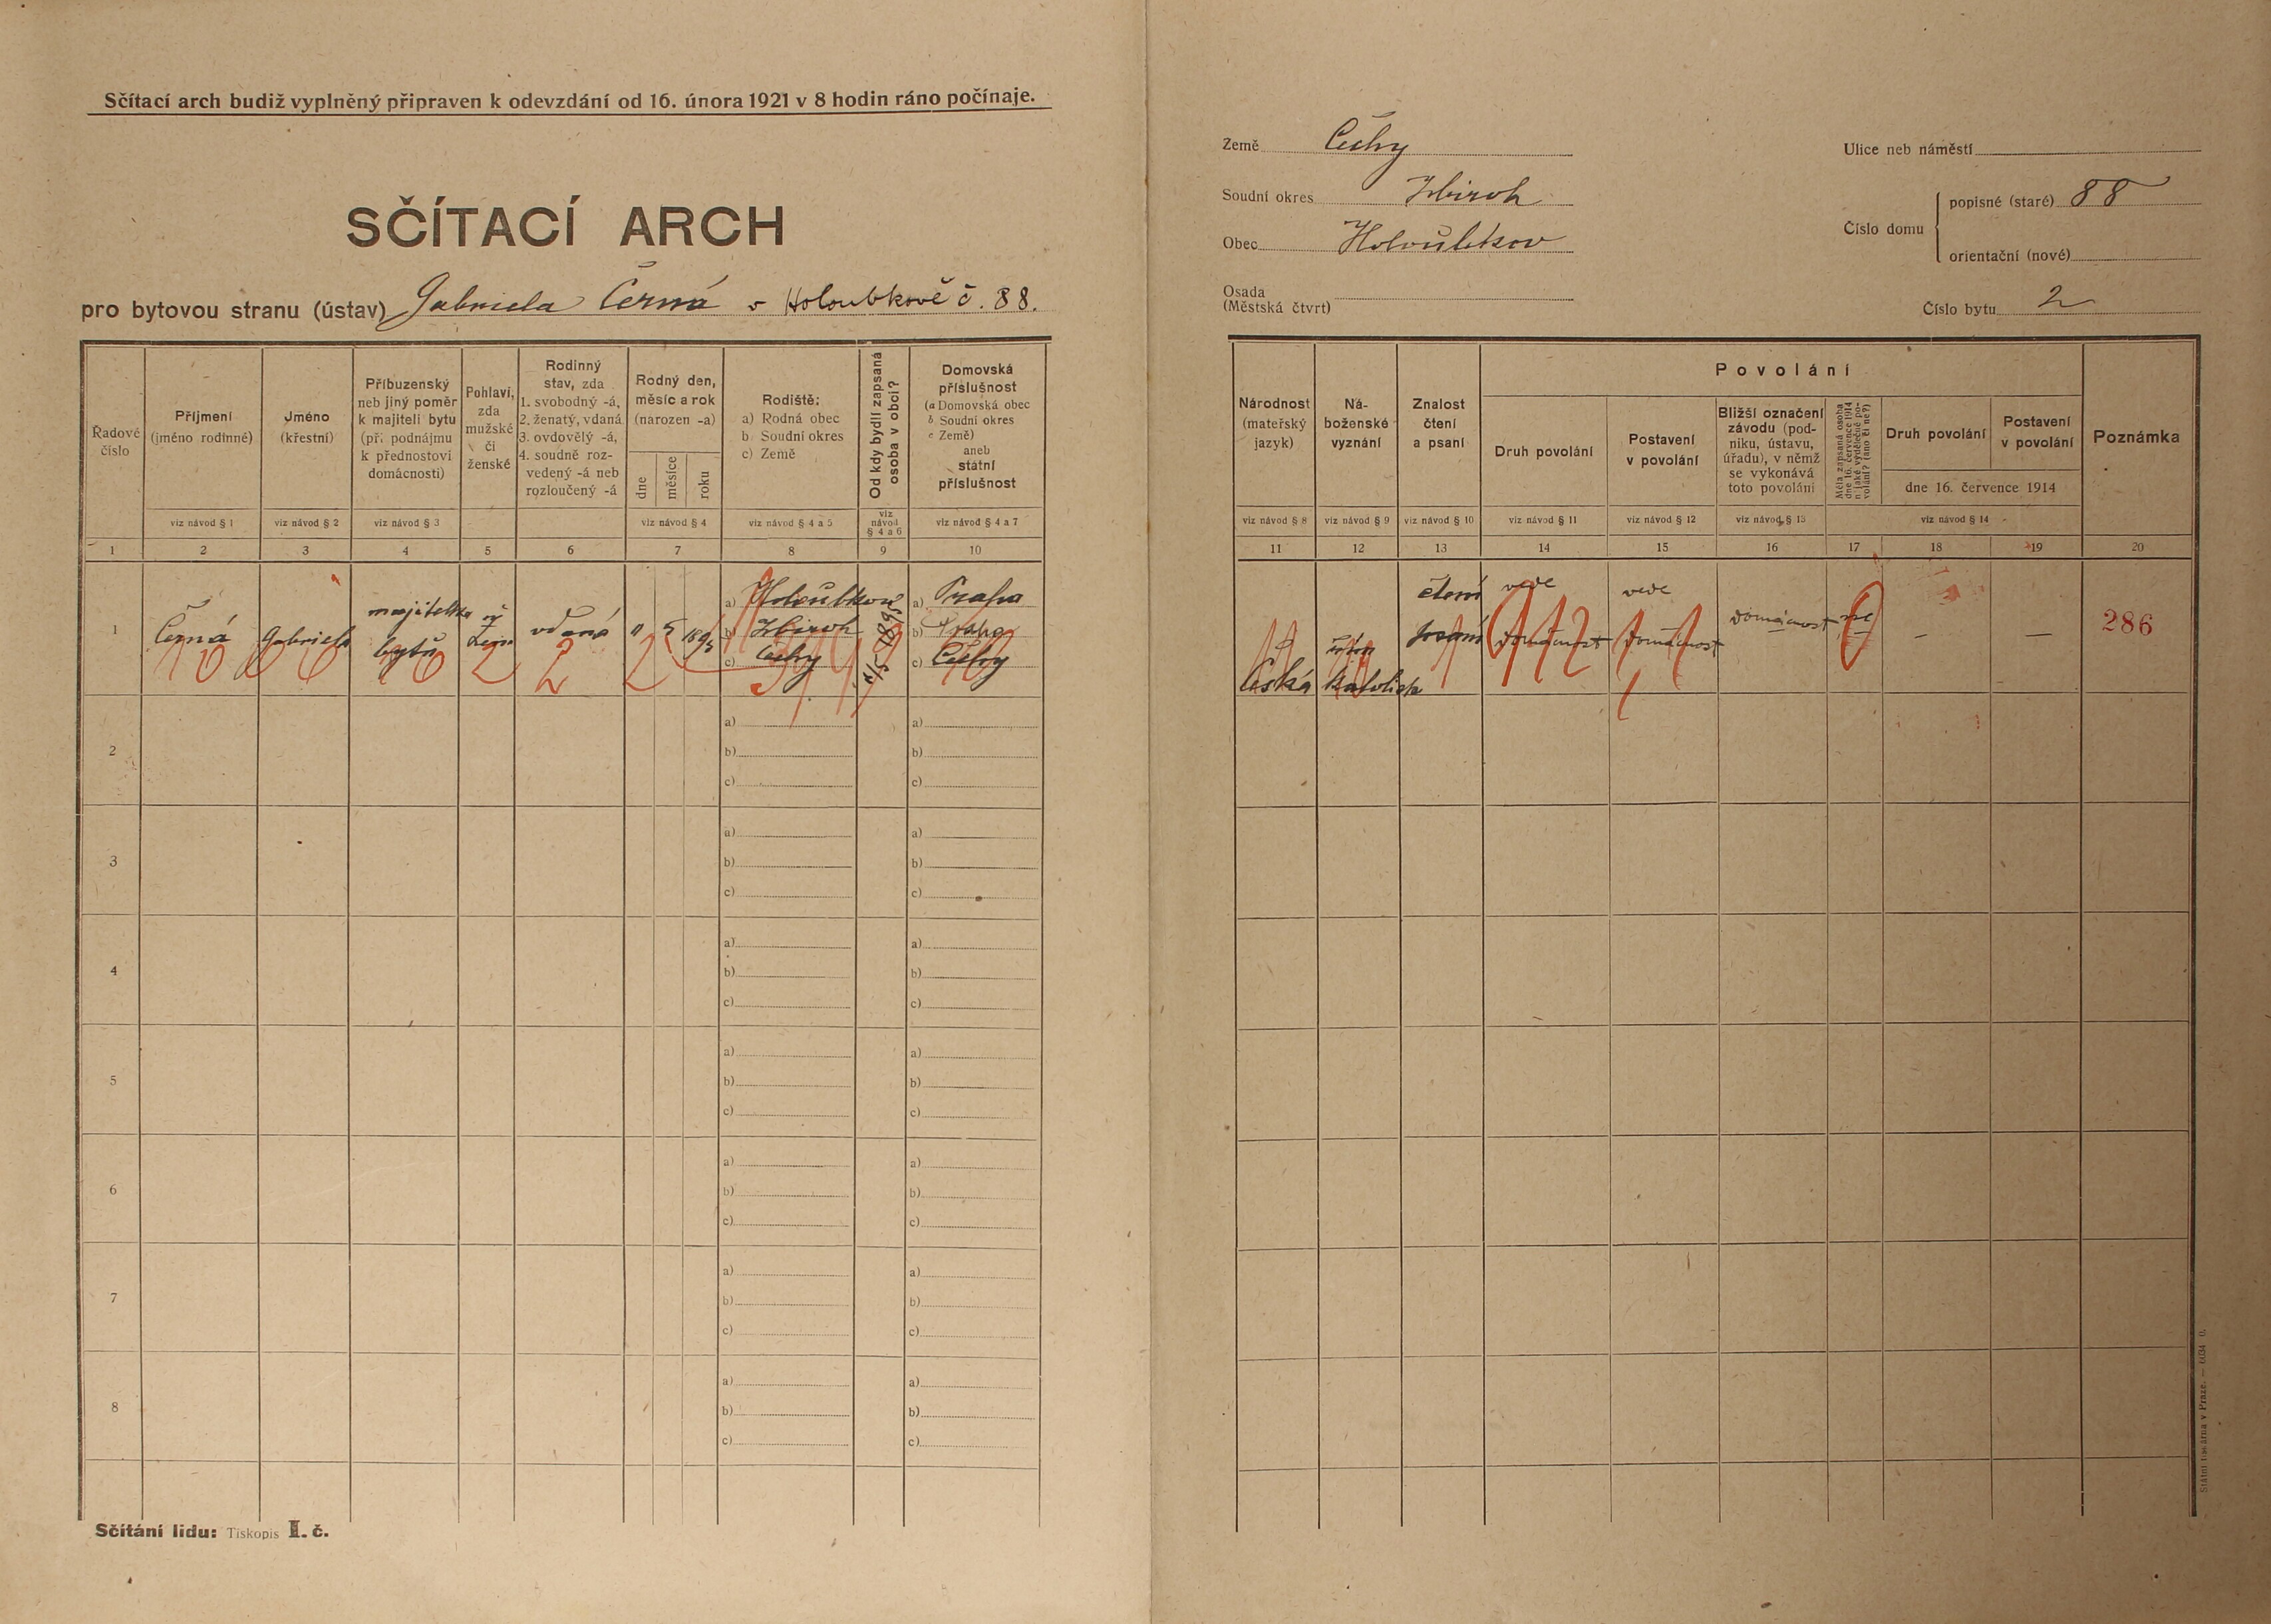 Sčítací arch budiž vyplněný připraven k odevzdání od 16. února 1921 v 8 hodin ráno počínaje.
SČÍTACÍ ARCH
pro bytovou stranu (ústav) Gabriela Černá v Holoubkově č. 88.
Země Čechy
Soudní okres Zbiroh
Obec Holoubkov
Osada
(Městská čtvrt)
Ulice neb náměstí
Číslo domu
popisné (staré) 88
orientační (nové)
Číslo bytu 2
Řadové číslo
Příjmení
(jméno rodinné)
Jméno
(křestní)
Příbuzenský
neb jiný poměr
k majiteli bytu
(při podnájmu
k přednostovi
domácnosti)
Pohlaví,
zda
mužské
či
ženské
Rodinný
stav, zda
1. svobodný -á,
2. ženatý, vdaná
3. ovdovělý -á,
4. soudně roz-
vedený -á neb
rozloučený -á
Rodný den,
měsíc a rok
(narozen -a)
dne
měsíce
roku
Rodiště:
a) Rodná obec
b) Soudní okres
c) Země
Od kdy bydlí zapsaná
osoba v obci?
Domovská
příslušnost
(a Domovská obec
b Soudní okres
c Země)
aneb
státní
příslušnost
viz návod § 1
viz návod § 2
viz návod § 3
viz návod § 4
viz návod § 4 a 5
viz
návod
§ 4 a 6
viz návod § 4 a 7
1 2 3 4 5 6 7 8 9 10
Národnost
(mateřský
jazyk)
Ná-
boženské
vyznání
Znalost
čtení
a psaní
Povolání
Druh povolání
Postavení
v povolání
Bližší označení
závodu (pod-
niku, ústavu,
úřadu), v němž
se vykonává
toto povolání
Měla zapsaná osoba
dne 16. července 1914
nějaké výdělečné po-
volání? (ano či ne?)
Druh povolání
Postavení
v povolání
dne 16. července 1914
Poznámka
viz návod § 8
viz návod § 9
viz návod § 10
viz návod § 11
viz návod § 12
viz návod § 13
viz návod § 14
11 12 13 14 15 16 17 18 19 20
1
Černá
Gabriela
majitelka
bytu
vdaná
11 5 1895
a) Holoubkov
b) Zbiroh
c) Čechy
11/5 1895
a) Praha
b) Praha
c) Čechy
Česká
katolick
čtení
psaní
vede
domácnost
vede
domácnost
domácnost
ne
—
—
286
2
a)
b)
c)
a)
b)
c)
3
a)
b)
c)
a)
b)
c)
4
a)
b)
c)
a)
b)
c)
5
a)
b)
c)
a)
b)
c)
6
a)
b)
c)
a)
b)
c)
7
a)
b)
c)
a)
b)
c)
8
a)
b)
c)
a)
b)
c)
Sčítání lidu: Tiskopis I. č.
Státní tiskárna v Praze.